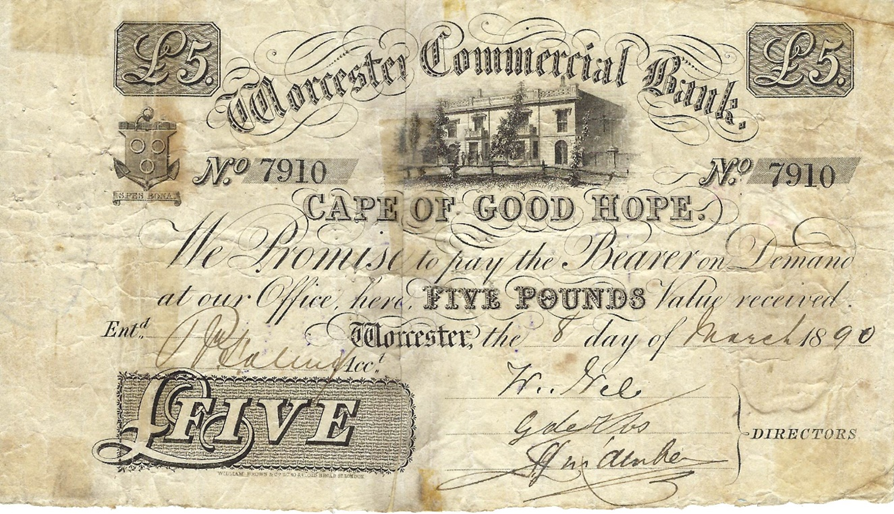 £5. Worcester Commercial Bank. £5.
SPES BONA
No. 7910 No. 7910
CAPE OF GOOD HOPE.
We Promise to pay the Bearer on Demand
at our Office, here, FIVE POUNDS Value received.
Entd. Worcester, the 8 day of March 1890
Acct.
£FIVE
DIRECTORS
WILLIAM BROWN &